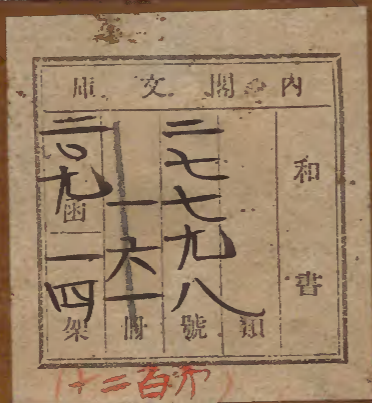 内閣文庫
和書
類
二七七九八號
一六一冊
二〇九函
一四架